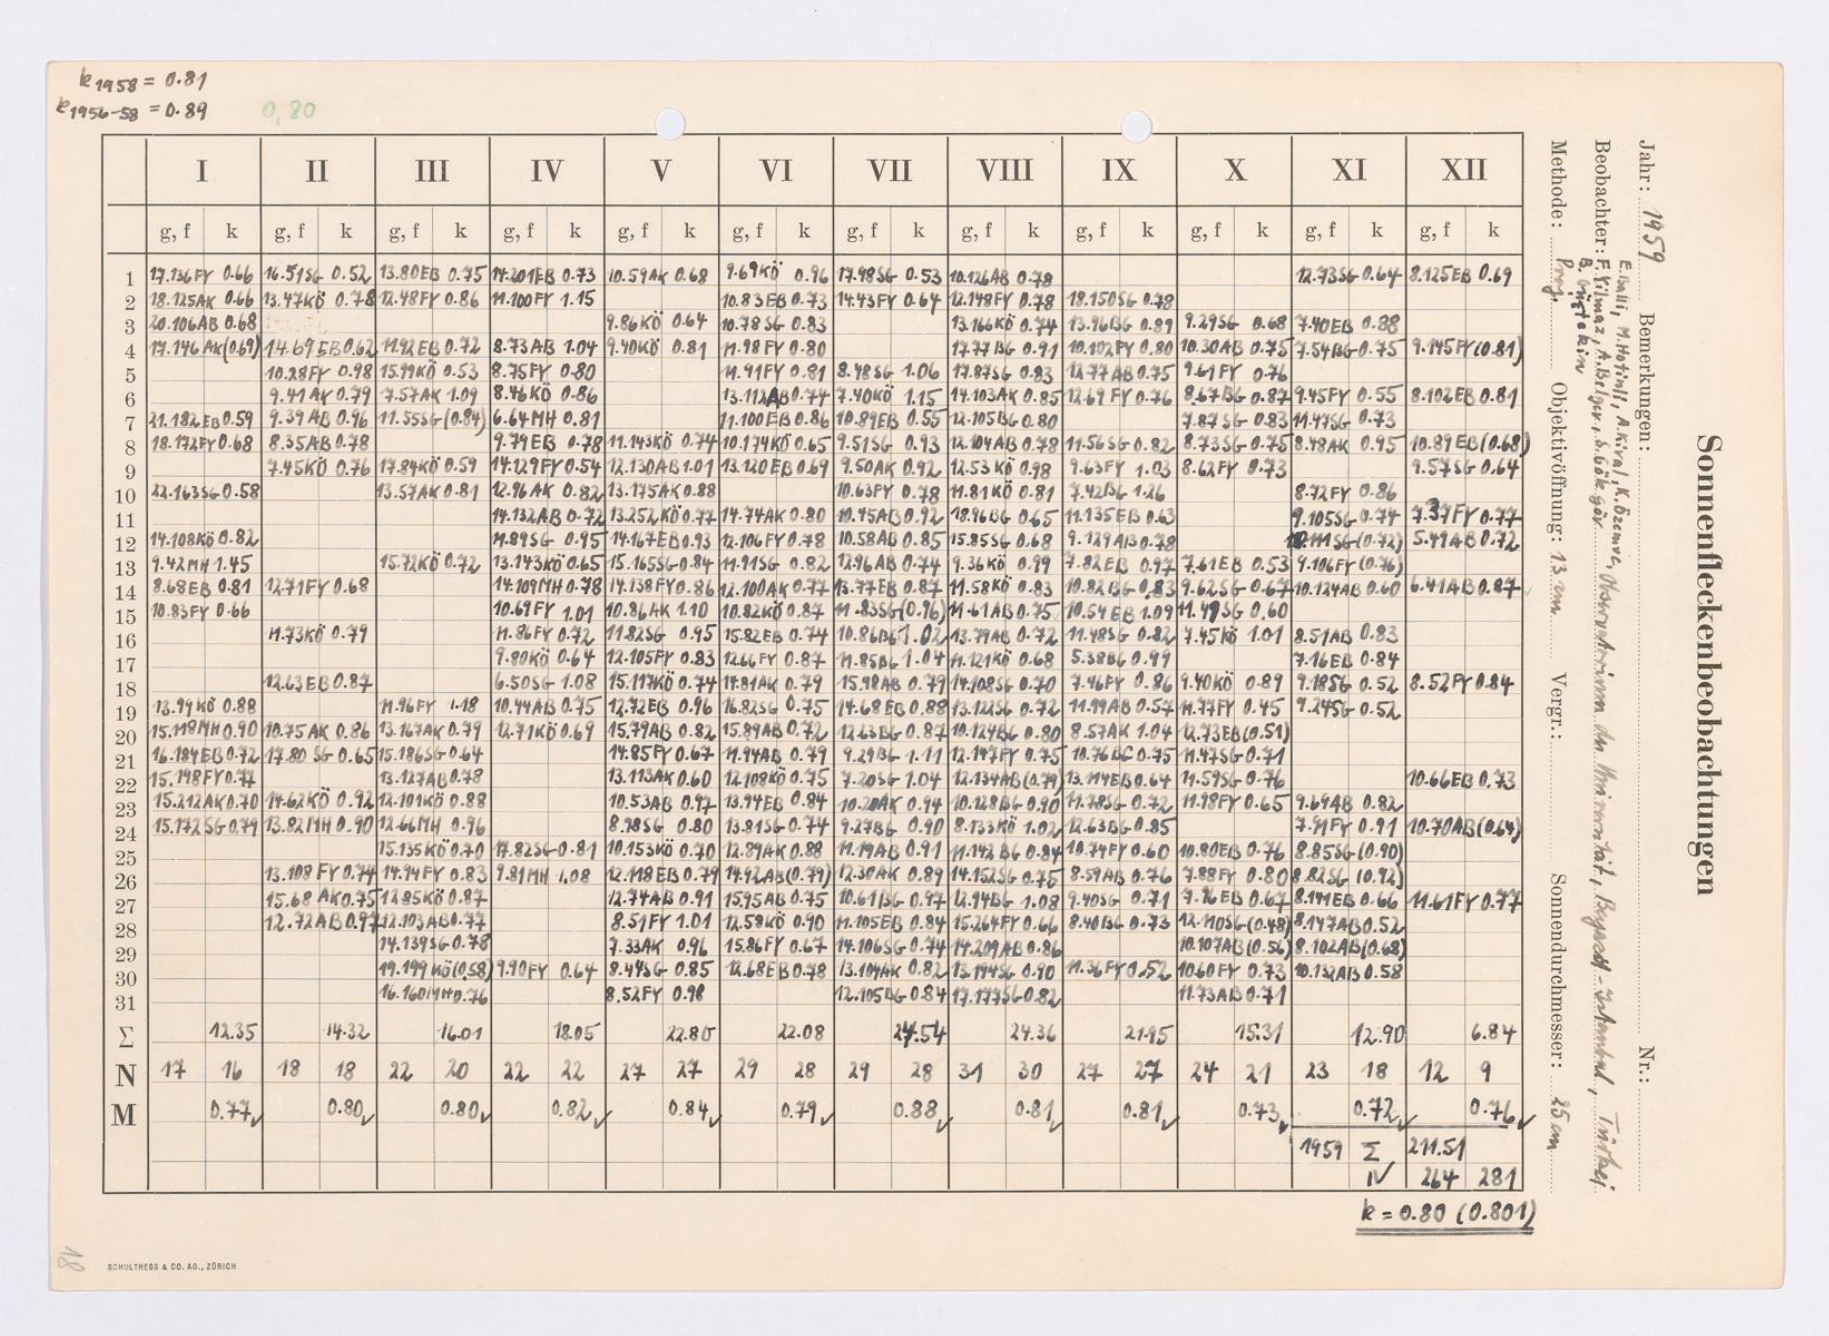 k1958 = 0.81
k1956-58 = 0.89 0,80
I II III IV V VI VII VIII IX X XI XII
g, f k g, f k g, f k g, f k g, f k g, f k g, f k g, f k g, f k g, f k g, f k g, f k
1 17.136FY 0.66 16.51SG 0.52 13.80EB 0.75 14.201EB 0.73 10.59AK 0.68 9.69KÖ 0.96 17.98SG 0.53 10.126AB 0.78 12.73SG 0.64 8.125EB 0.69
2 18.125AK 0.66 13.47KÖ 0.78 12.48FY 0.86 11.100FY 1.15 10.83EB 0.73 14.43FY 0.64 12.148FY 0.78 18.150SG 0.78
3 20.106AB 0.68 9.86KÖ 0.64 10.78SG 0.83 13.166KÖ 0.74 13.96BG 0.89 9.29SG 0.68 7.40EB 0.88
4 17.146AK(0.69) 14.69EB 0.62 11.92EB 0.72 8.73AB 1.04 9.40KÖ 0.81 11.98FY 0.80 17.77BG 0.91 10.102FY 0.80 10.30AB 0.75 7.54BG 0.75 9.145FY(0.81)
5 10.28FY 0.98 15.99KÖ 0.53 8.75FY 0.80 11.91FY 0.81 8.48SG 1.06 17.87SG 0.83 12.77AB 0.75 9.61FY 0.76
6 9.41AY 0.79 7.57AK 1.09 8.46KÖ 0.86 13.112AB 0.74 7.40KÖ 1.15 14.103AK 0.85 12.69FY 0.76 8.67BG 0.87 9.45FY 0.55 8.102EB 0.81
7 21.182EB 0.59 9.39AB 0.96 11.55SG(0.84) 6.64MH 0.81 11.100EB 0.86 10.89EB 0.55 12.105BG 0.80 7.87SG 0.83 11.47SG 0.73
8 18.172FY 0.68 8.35AB 0.78 9.79EB 0.78 11.143KÖ 0.74 10.174KÖ 0.65 9.51SG 0.93 12.104AB 0.78 11.56SG 0.82 8.73SG 0.75 8.48AK 0.95 10.89EB(0.68)
9 7.45KÖ 0.76 17.84KÖ 0.59 14.129FY 0.54 12.130AB 1.01 13.120EB 0.69 9.50AK 0.92 12.53KÖ 0.98 9.63FY 1.03 8.62FY 0.73 9.57SG 0.64
10 22.163SG 0.58 13.57AK 0.81 12.96AK 0.82 13.175AK 0.88 10.63FY 0.78 11.81KÖ 0.81 7.42BG 1.26 8.72FY 0.86
11 14.132AB 0.72 13.252KÖ 0.77 14.74AK 0.80 10.45AB 0.92 18.96BG 0.65 11.135EB 0.63 9.105SG 0.74 7.37FY 0.77
12 14.108KÖ 0.82 11.89SG 0.95 14.167EB 0.93 12.106FY 0.78 10.58AB 0.85 15.85SG 0.68 9.129AB 0.78 10.111SG(0.72) 5.49AB 0.72
13 9.42MH 1.45 15.72KÖ 0.72 13.143KÖ 0.65 15.165SG 0.84 11.91SG 0.82 12.96AB 0.74 9.36KÖ 0.99 7.82EB 0.97 7.61EB 0.53 9.106FY(0.76)
14 8.68EB 0.81 12.71FY 0.68 14.109MH 0.78 14.138FY 0.86 12.100AK 0.77 13.77EB 0.87 11.58KÖ 0.83 10.82BG 0.83 9.62SG 0.67 10.124AB 0.60 6.41AB 0.87
15 10.83FY 0.66 10.69FY 1.01 10.86AK 1.10 10.82KÖ 0.87 11.83SG(0.96) 11.61AB 0.75 10.54EB 1.09 11.49SG 0.60
16 11.73KÖ 0.79 11.86FY 0.72 11.82SG 0.95 15.82EB 0.74 10.86BG 1.02 13.79AB 0.72 11.48SG 0.82 7.45KÖ 1.01 8.51AB 0.83
17 9.80KÖ 0.64 12.105FY 0.83 12.66FY 0.87 11.85BG 1.04 11.121KÖ 0.68 5.38BG 0.99 7.16EB 0.84
18 12.63EB 0.87 6.50SG 1.08 15.117KÖ 0.74 14.81AK 0.79 15.98AB 0.79 14.108SG 0.70 7.46FY 0.86 9.40KÖ 0.89 9.18SG 0.52 8.52FY 0.84
19 13.99KÖ 0.88 11.96FY 1.18 10.44AB 0.75 12.72EB 0.96 16.82SG 0.75 14.68EB 0.88 13.122SG 0.72 11.99AB 0.57 11.77FY 0.45 9.24SG 0.52
20 15.118MH 0.90 10.75AK 0.86 13.167AK 0.79 12.71KÖ 0.69 15.79AB 0.82 15.89AB 0.72 12.63BG 0.87 10.124BG 0.80 8.57AK 1.04 12.73EB(0.51)
21 16.184EB 0.72 17.80SG 0.65 15.186SG 0.64 14.85FY 0.67 11.94AB 0.79 9.29BG 1.11 12.147FY 0.75 10.76BG 0.75 11.47SG 0.71
22 15.198FY 0.77 13.127AB 0.78 13.113AK 0.60 12.108KÖ 0.75 7.20SG 1.04 12.134AB(0.79) 13.114EB 0.64 11.59SG 0.76 10.66EB 0.73
23 15.212AK 0.70 14.62KÖ 0.92 12.101KÖ 0.88 10.53AB 0.97 13.94EB 0.84 10.20AK 0.94 10.128BG 0.90 11.78SG 0.72 11.98FY 0.65 9.69AB 0.82
24 15.172SG 0.79 13.82MH 0.90 12.66MH 0.96 8.98SG 0.80 13.81SG 0.74 9.27BG 0.90 8.133KÖ 1.02 12.63BG 0.85 7.91FY 0.91 10.70AB(0.64)
25 15.135KÖ 0.70 17.82SG 0.81 10.153KÖ 0.70 12.89AK 0.88 11.19AB 0.91 11.142BG 0.84 10.74FY 0.60 10.80EB 0.76 8.85SG(0.90)
26 13.108FY 0.74 14.94FY 0.83 9.81MH 1.08 12.118EB 0.79 14.92AB(0.79) 12.30AK 0.89 14.152SG 0.75 8.59AB 0.76 7.88FY 0.80 8.82SG (0.92)
27 15.68AK 0.75 12.85KÖ 0.87 12.74AB 0.91 15.95AB 0.75 10.61BG 0.97 12.94BG 1.08 9.40SG 0.71 7.96EB 0.67 8.141EB 0.66 11.61FY 0.77
28 12.72AB 0.97 12.103AB 0.77 8.51FY 1.01 12.58KÖ 0.90 11.105EB 0.84 15.264FY 0.66 8.40BG 0.73 12.110SG(0.48) 8.147AB 0.52
29 14.139SG 0.78 7.33AK 0.96 15.86FY 0.67 14.106SG 0.74 14.209AB 0.86 10.107AB(0.56) 8.102AB(0.68)
30 19.199KÖ(0.58) 9.90FY 0.64 8.44SG 0.85 12.68EB 0.78 13.104AK 0.82 13.194SG 0.90 11.36FY 0.52 10.60FY 0.73 10.132AB 0.58
31 16.160MH 0.76 8.52FY 0.98 12.105BG 0.84 17.177SG 0.82 11.73AB 0.71
Σ 12.35 14.32 16.01 18.05 22.80 22.08 24.54 24.36 21.95 15.31 12.90 6.84
N 17 16 18 18 22 20 22 22 27 27 29 28 29 28 31 30 27 27 24 21 23 18 12 9
M 0.77 0.80 0.80 0.82 0.84 0.79 0.88 0.81 0.81 0.73 0.72 0.76
1959 Σ 211.51
N 264 281
k = 0.80 (0.801)
Sonnenfleckenbeobachtungen
Jahr: 1959 Bemerkungen: Nr.:
Beobachter: F. Yilmaz,
Methode: Proj. Objektivöffnung: 13 cm Vergr.: Sonnendurchmesser: 25 cm
18
SCHULTHESS & CO. AG., ZÜRICH